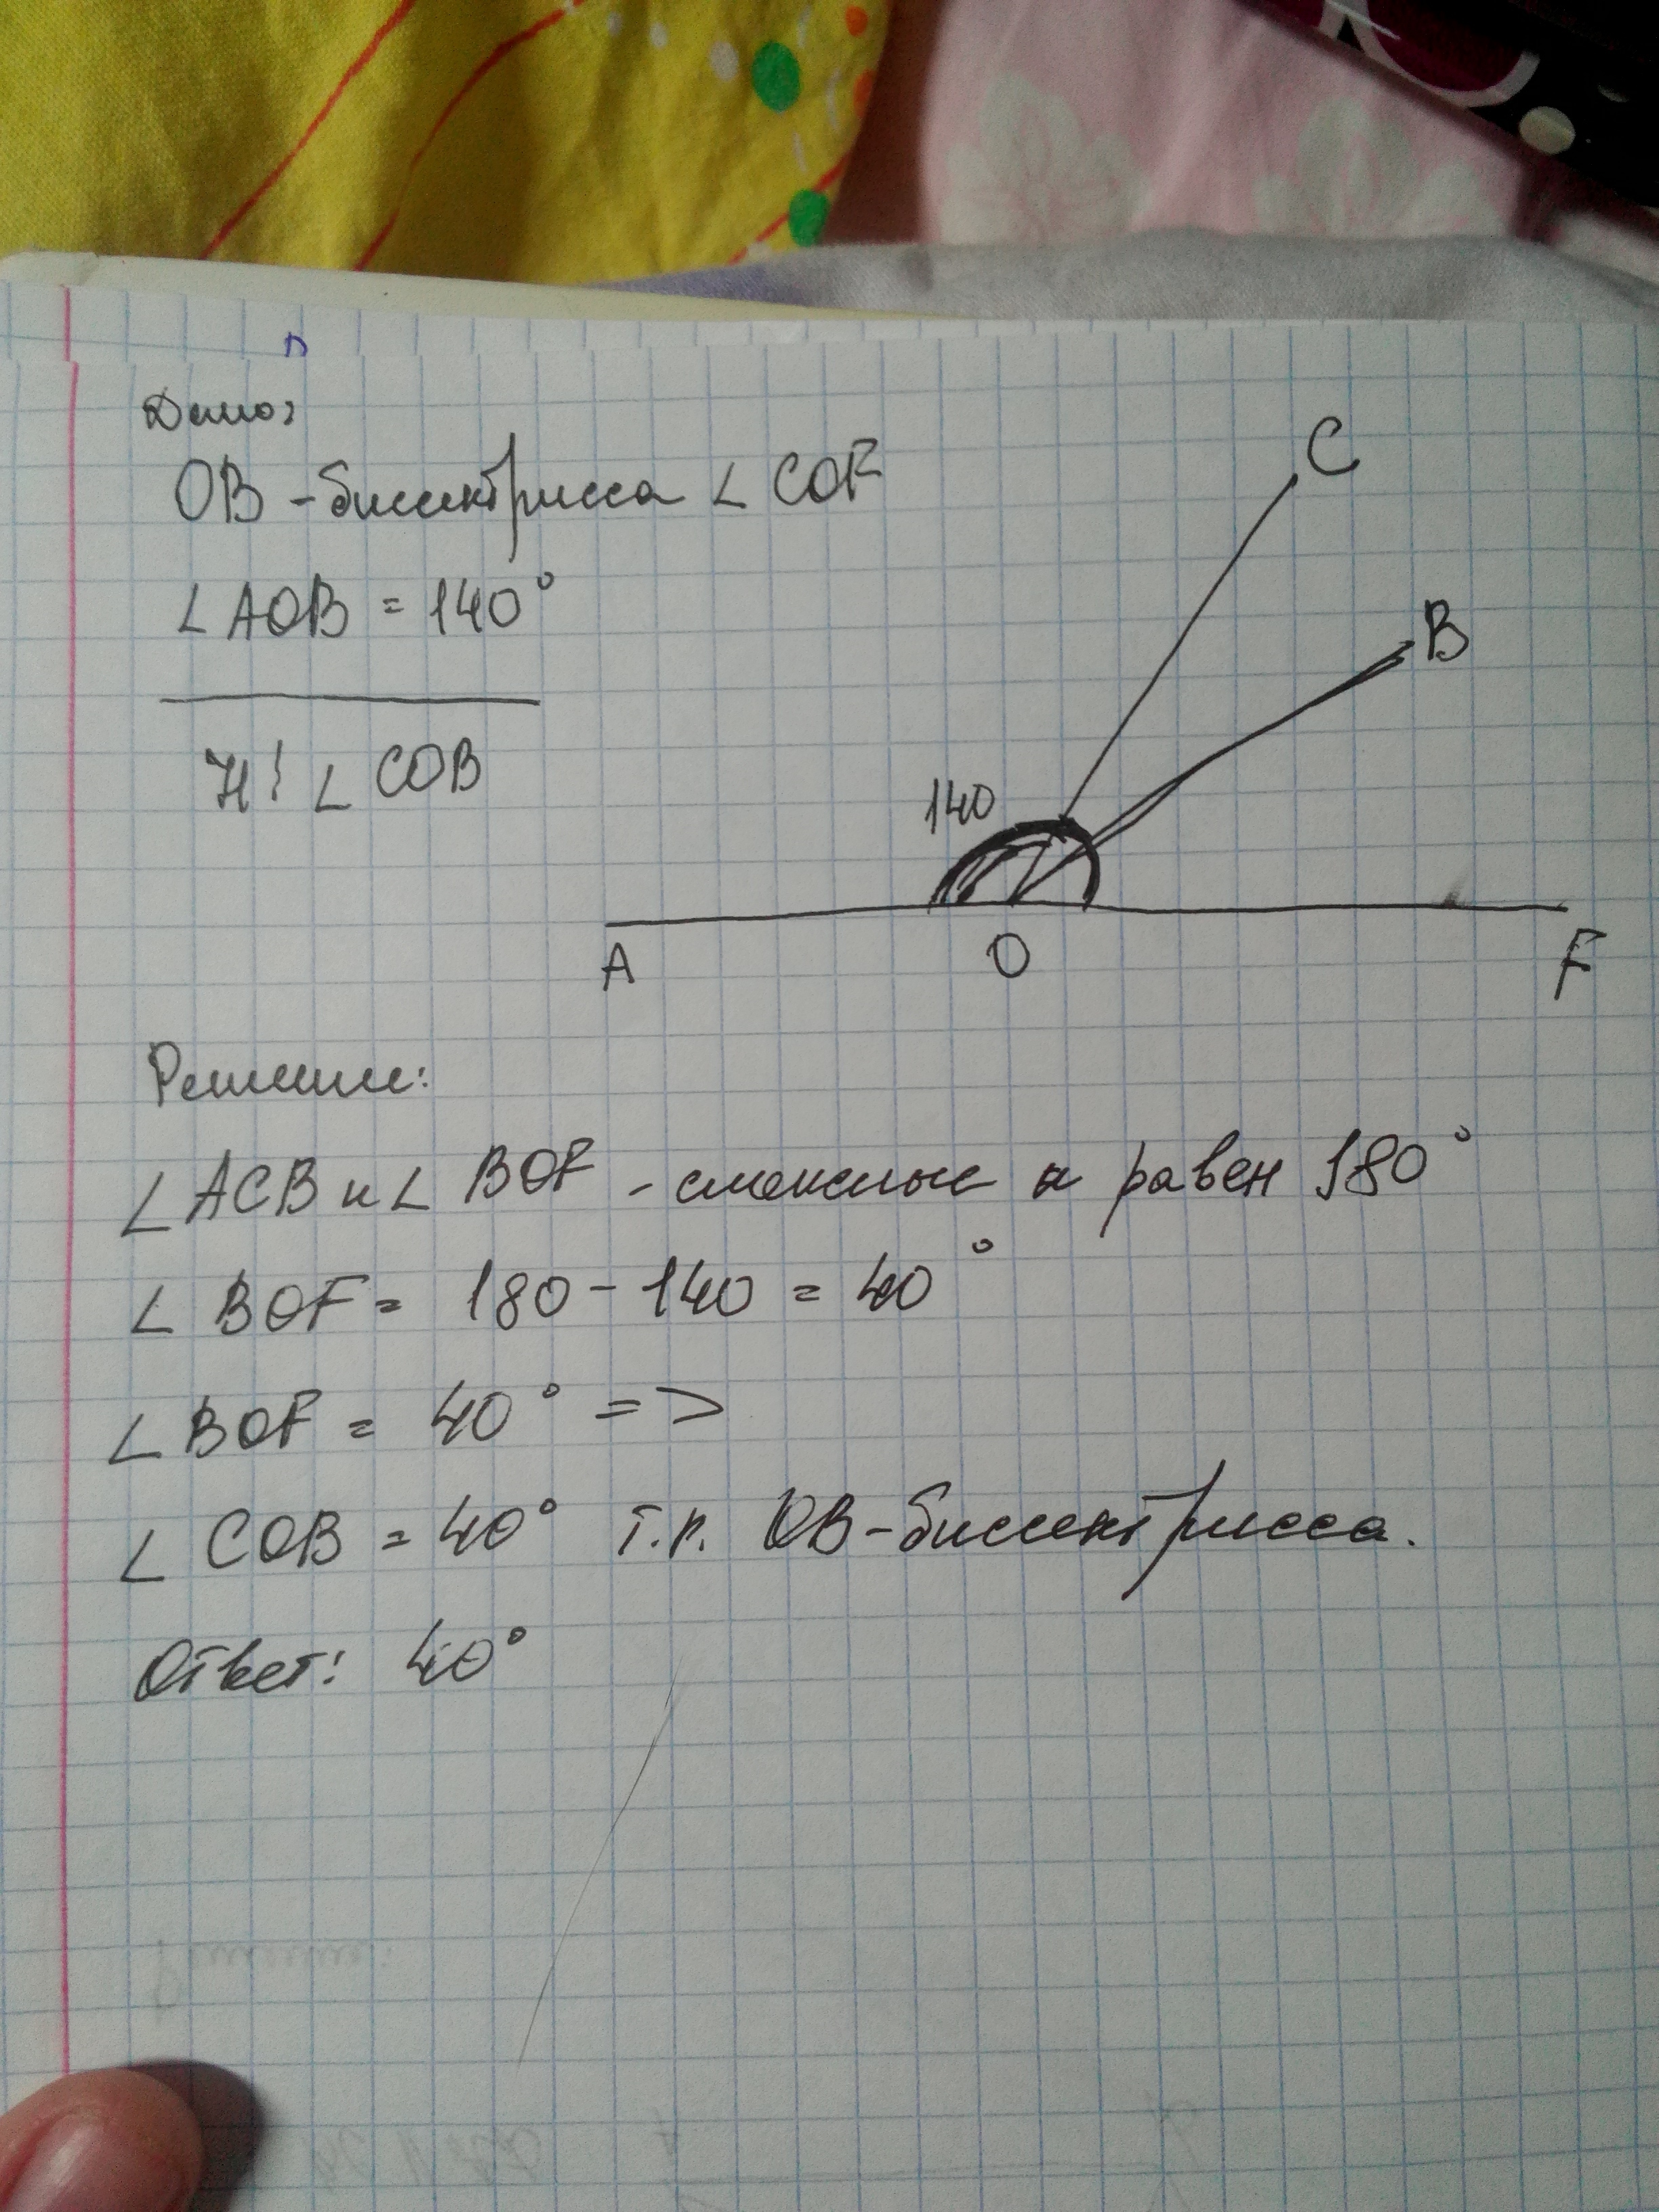 Дано:
OB - биссектрисса ∠ COF
∠ AOB = 140°
Н! ∠ COB
C
B
140
A
O
F
Решение:
∠ ACB и ∠ BOF - смежные и равен 180°
∠ BOF = 180 - 140 = 40°
∠ BOF = 40° =>
∠ COB = 40° т.к. OB - биссектрисса.
Ответ: 40°